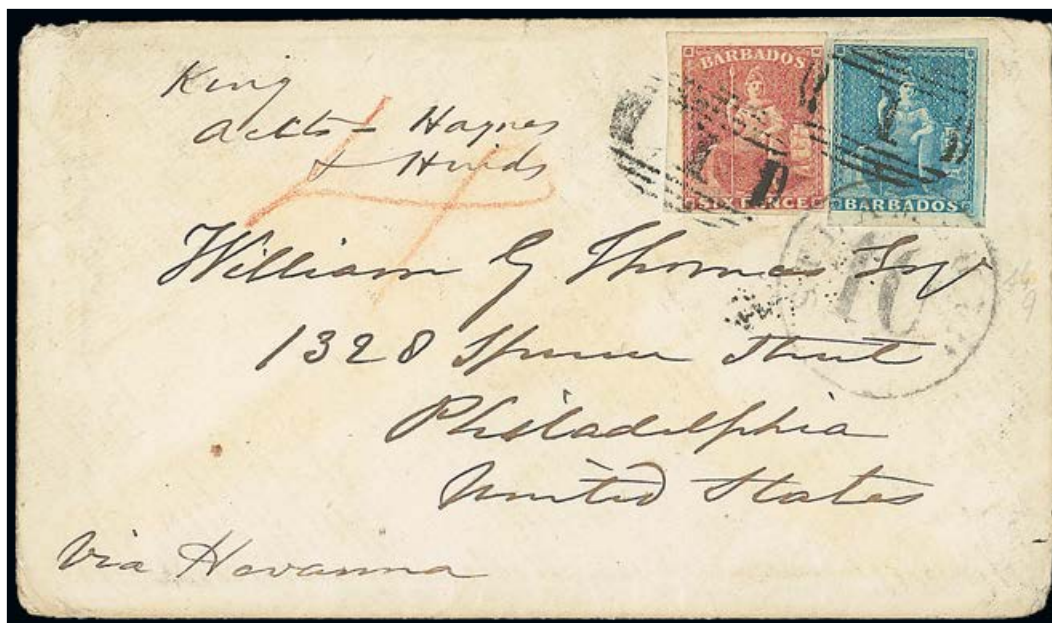 King
accts - Haynes
& Hinds
4
BARBADOS
SIX PENCE
BARBADOS
1
1
William G Thomas Esqr
STEAMSHIP
10
1328 Spruce Street
Philadelphia
United States
Via Havanna